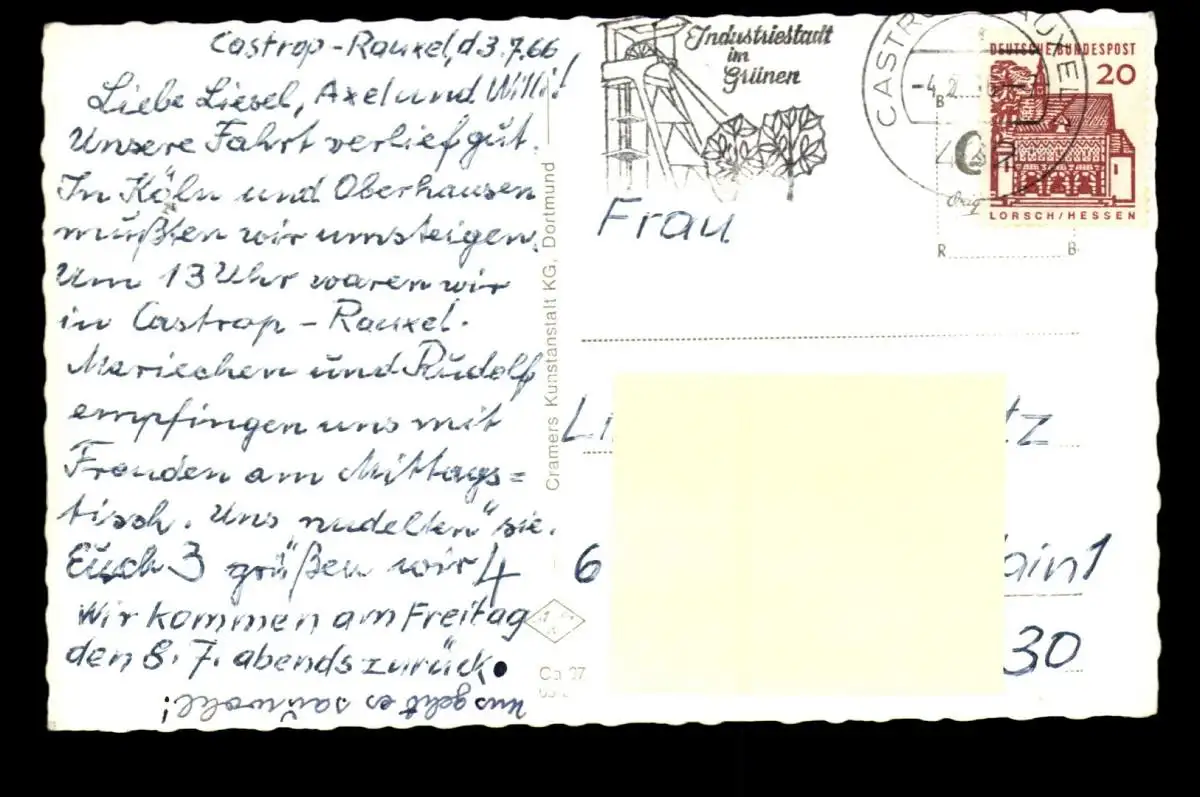 Castrop-Rauxel, d 3.7.66
Liebe Liesel, Axel und Willi!
Unsere Fahrt verlief gut.
In Köln und Oberhausen
mußten wir umsteigen.
Um 13 Uhr waren wir
in Castrop-Rauxel.
Mariechen und Rudolf
empfingen uns mit
Freuden am Mittags=
tisch. Uns nudelten" sie.
Euch 3 grüßen wir 4
Wir kommen am Freitag
den 8.7. abends zurück.
Uns geht es sauwohl!
Cramers Kunstanstalt KG, Dortmund
Industriestadt
im
Grünen
CASTROP-RAUXEL
DEUTSCHE BUNDESPOST
20
LORSCH/HESSEN
B
R B
Frau
Li tz
6 ain 1
30